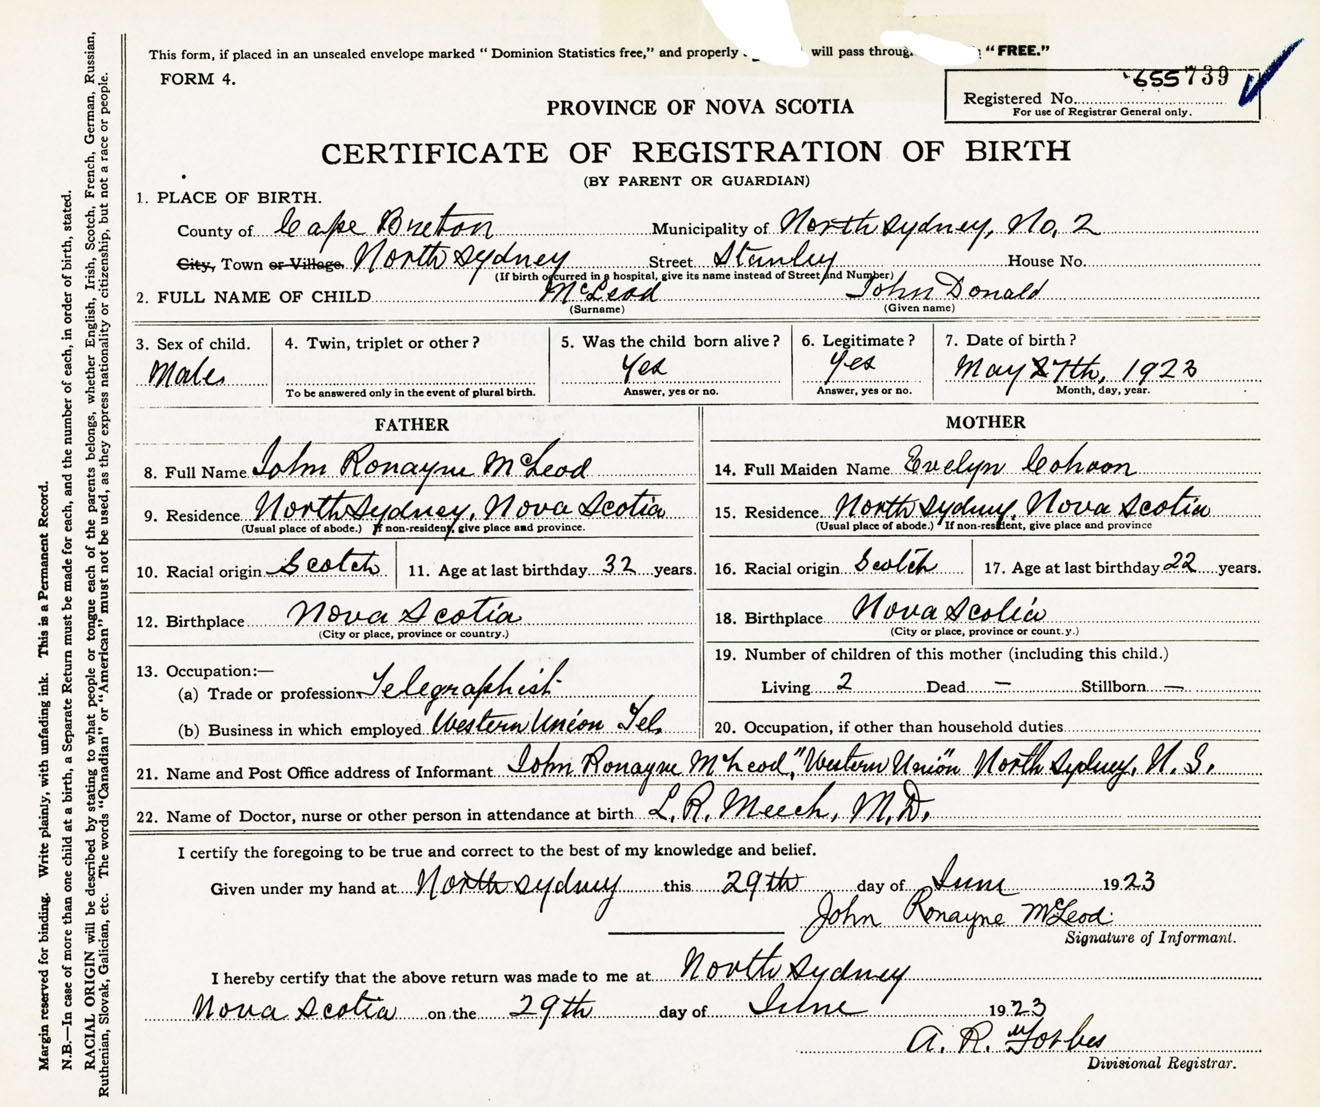 This form, if placed in an unsealed envelope marked "Dominion Statistics free," and properly will pass through "FREE."
FORM 4.
655739
Registered No.
For use of Registrar General only.
PROVINCE OF NOVA SCOTIA
CERTIFICATE OF REGISTRATION OF BIRTH
(BY PARENT OR GUARDIAN)
1. PLACE OF BIRTH.
County of Cape Breton Municipality of North Sydney, No. 2
City, Town or Village North Sydney Street Stanley House No.
(If birth occurred in a hospital, give its name instead of Street and Number)
2. FULL NAME OF CHILD McLeod John Donald
(Surname) (Given name)
3. Sex of child. 4. Twin, triplet or other? 5. Was the child born alive? 6. Legitimate? 7. Date of birth?
Male Yes Yes May 27th, 1923
To be answered only in the event of plural birth. Answer, yes or no. Answer, yes or no. Month, day, year.
FATHER MOTHER
8. Full Name John Ronayne McLeod 14. Full Maiden Name Evelyn Cohoon
9. Residence North Sydney, Nova Scotia 15. Residence North Sydney, Nova Scotia
(Usual place of abode.) If non-resident, give place and province. (Usual place of abode.) If non-resident, give place and province
10. Racial origin Scotch 11. Age at last birthday 32 years. 16. Racial origin Scotch 17. Age at last birthday 22 years.
12. Birthplace Nova Scotia 18. Birthplace Nova Scotia
(City or place, province or country.) (City or place, province or county.)
13. Occupation:— 19. Number of children of this mother (including this child.)
(a) Trade or profession Telegraphist Living 2 Dead — Stillborn —
(b) Business in which employed Western Union Tel. 20. Occupation, if other than household duties
21. Name and Post Office address of Informant John Ronayne McLeod, "Western Union" North Sydney, N. S.
22. Name of Doctor, nurse or other person in attendance at birth L. R. Meech, M.D.
I certify the foregoing to be true and correct to the best of my knowledge and belief.
Given under my hand at North Sydney this 29th day of June 1923
John Ronayne McLeod
Signature of Informant.
I hereby certify that the above return was made to me at North Sydney
Nova Scotia on the 29th day of June 1923
A. R. Forbes
Divisional Registrar.
Margin reserved for binding. Write plainly, with unfading ink. This is a Permanent Record.
N.B.—In case of more than one child at a birth, a Separate Return must be made for each, and the number of each, in order of birth, stated.
RACIAL ORIGIN will be described by stating to what people or tongue each of the parents belongs, whether English, Irish, Scotch, French, German, Russian,
Ruthenian, Slovak, Galician, etc. The words "Canadian" or "American" must not be used, as they express nationality or citizenship, but not a race or people.